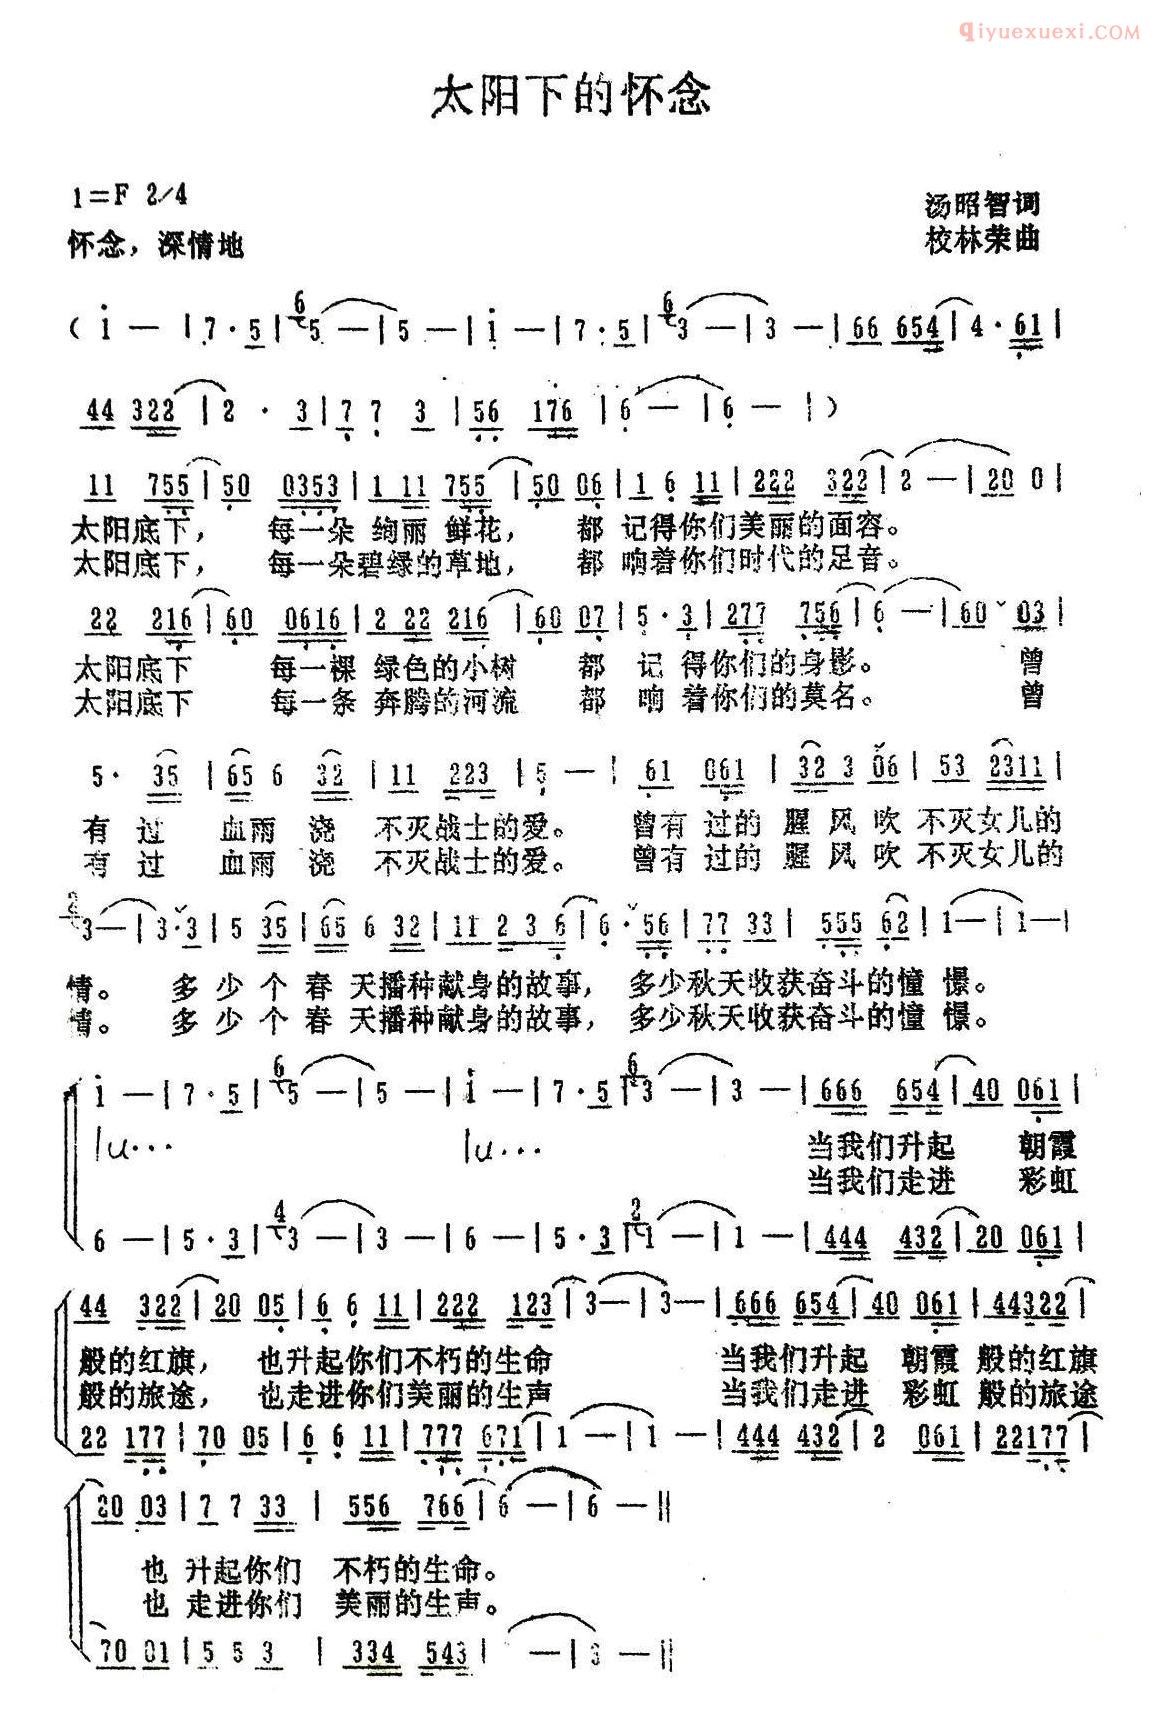 qiyuexuexi.COM
太阳下的怀念
1=F 2/4
汤昭智词
怀念，深情地
校林荣曲
( i — | 7 · 5 | 6 5 — | 5 — | i — | 7 · 5 | 6 3 — | 3 — | 66 654 | 4 · 61 |
44 322 | 2 · 3 | 7 7 3 | 56 176 | 6 — | 6 — | )
11 755 | 50 0353 | 1 11 755 | 50 06 | 1 6 11 | 222 322 | 2 — | 20 0 |
太阳底下， 每一朵 绚丽 鲜花， 都 记得你们美丽的面容。
太阳底下， 每一朵碧绿的草地， 都 响着你们时代的足音。
22 216 | 60 0616 | 2 22 216 | 60 07 | 5 · 3 | 277 756 | 6 — | 60 ˇ 03 |
太阳底下 每一棵 绿色的小树 都 记 得你们的身影。 曾
太阳底下 每一条 奔腾的河流 都 响 着你们的莫名。 曾
5 · 35 | 65 6 32 | 11 223 | 5 — | 61 061 | 32 3 ˇ 06 | 53 2311 |
有 过 血雨 浇 不灭战士的爱。 曾有 过的 腥 风 吹 不灭女儿的
有 过 血雨 浇 不灭战士的爱。 曾有 过的 腥 风 吹 不灭女儿的
2 3 — | 3 · ˇ 3 | 5 35 | 65 6 32 | 11 2 3 6 | 6 · ˇ 56 | 77 33 | 555 62 | 1 — | 1 — |
情。 多 少 个 春 天播种献身的故事， 多少秋天收获奋斗的憧 憬。
情。 多 少 个 春 天播种献身的故事， 多少秋天收获奋斗的憧 憬。
i — | 7 · 5 | 6 5 — | 5 — | i — | 7 · 5 | 6 3 — | 3 — | 666 654 | 40 061 |
lu··· lu··· 当我们升起 朝霞
当我们走进 彩虹
6 — | 5 · 3 | 4 3 — | 3 — | 6 — | 5 · 3 | 2 1 — | 1 — | 444 432 | 20 061 |
44 322 | 20 05 | 6 6 11 | 222 123 | 3 — | 3 — | 666 654 | 40 061 | 44322 |
般的红旗， 也升起你们不朽的生命 当我们升起 朝霞 般的红旗
般的旅途， 也走进你们美丽的生声 当我们走进 彩虹 般的旅途
22 177 | 70 05 | 6 6 11 | 777 671 | 1 — | 1 — | 444 432 | 2 061 | 22177 |
20 03 | 7 7 33 | 556 766 | 6 — | 6 — ||
也 升起你们 不朽的生命。
也 走进你们 美丽的生声。
70 01 | 5 5 3 | 334 543 | 3 — | 3 — ||